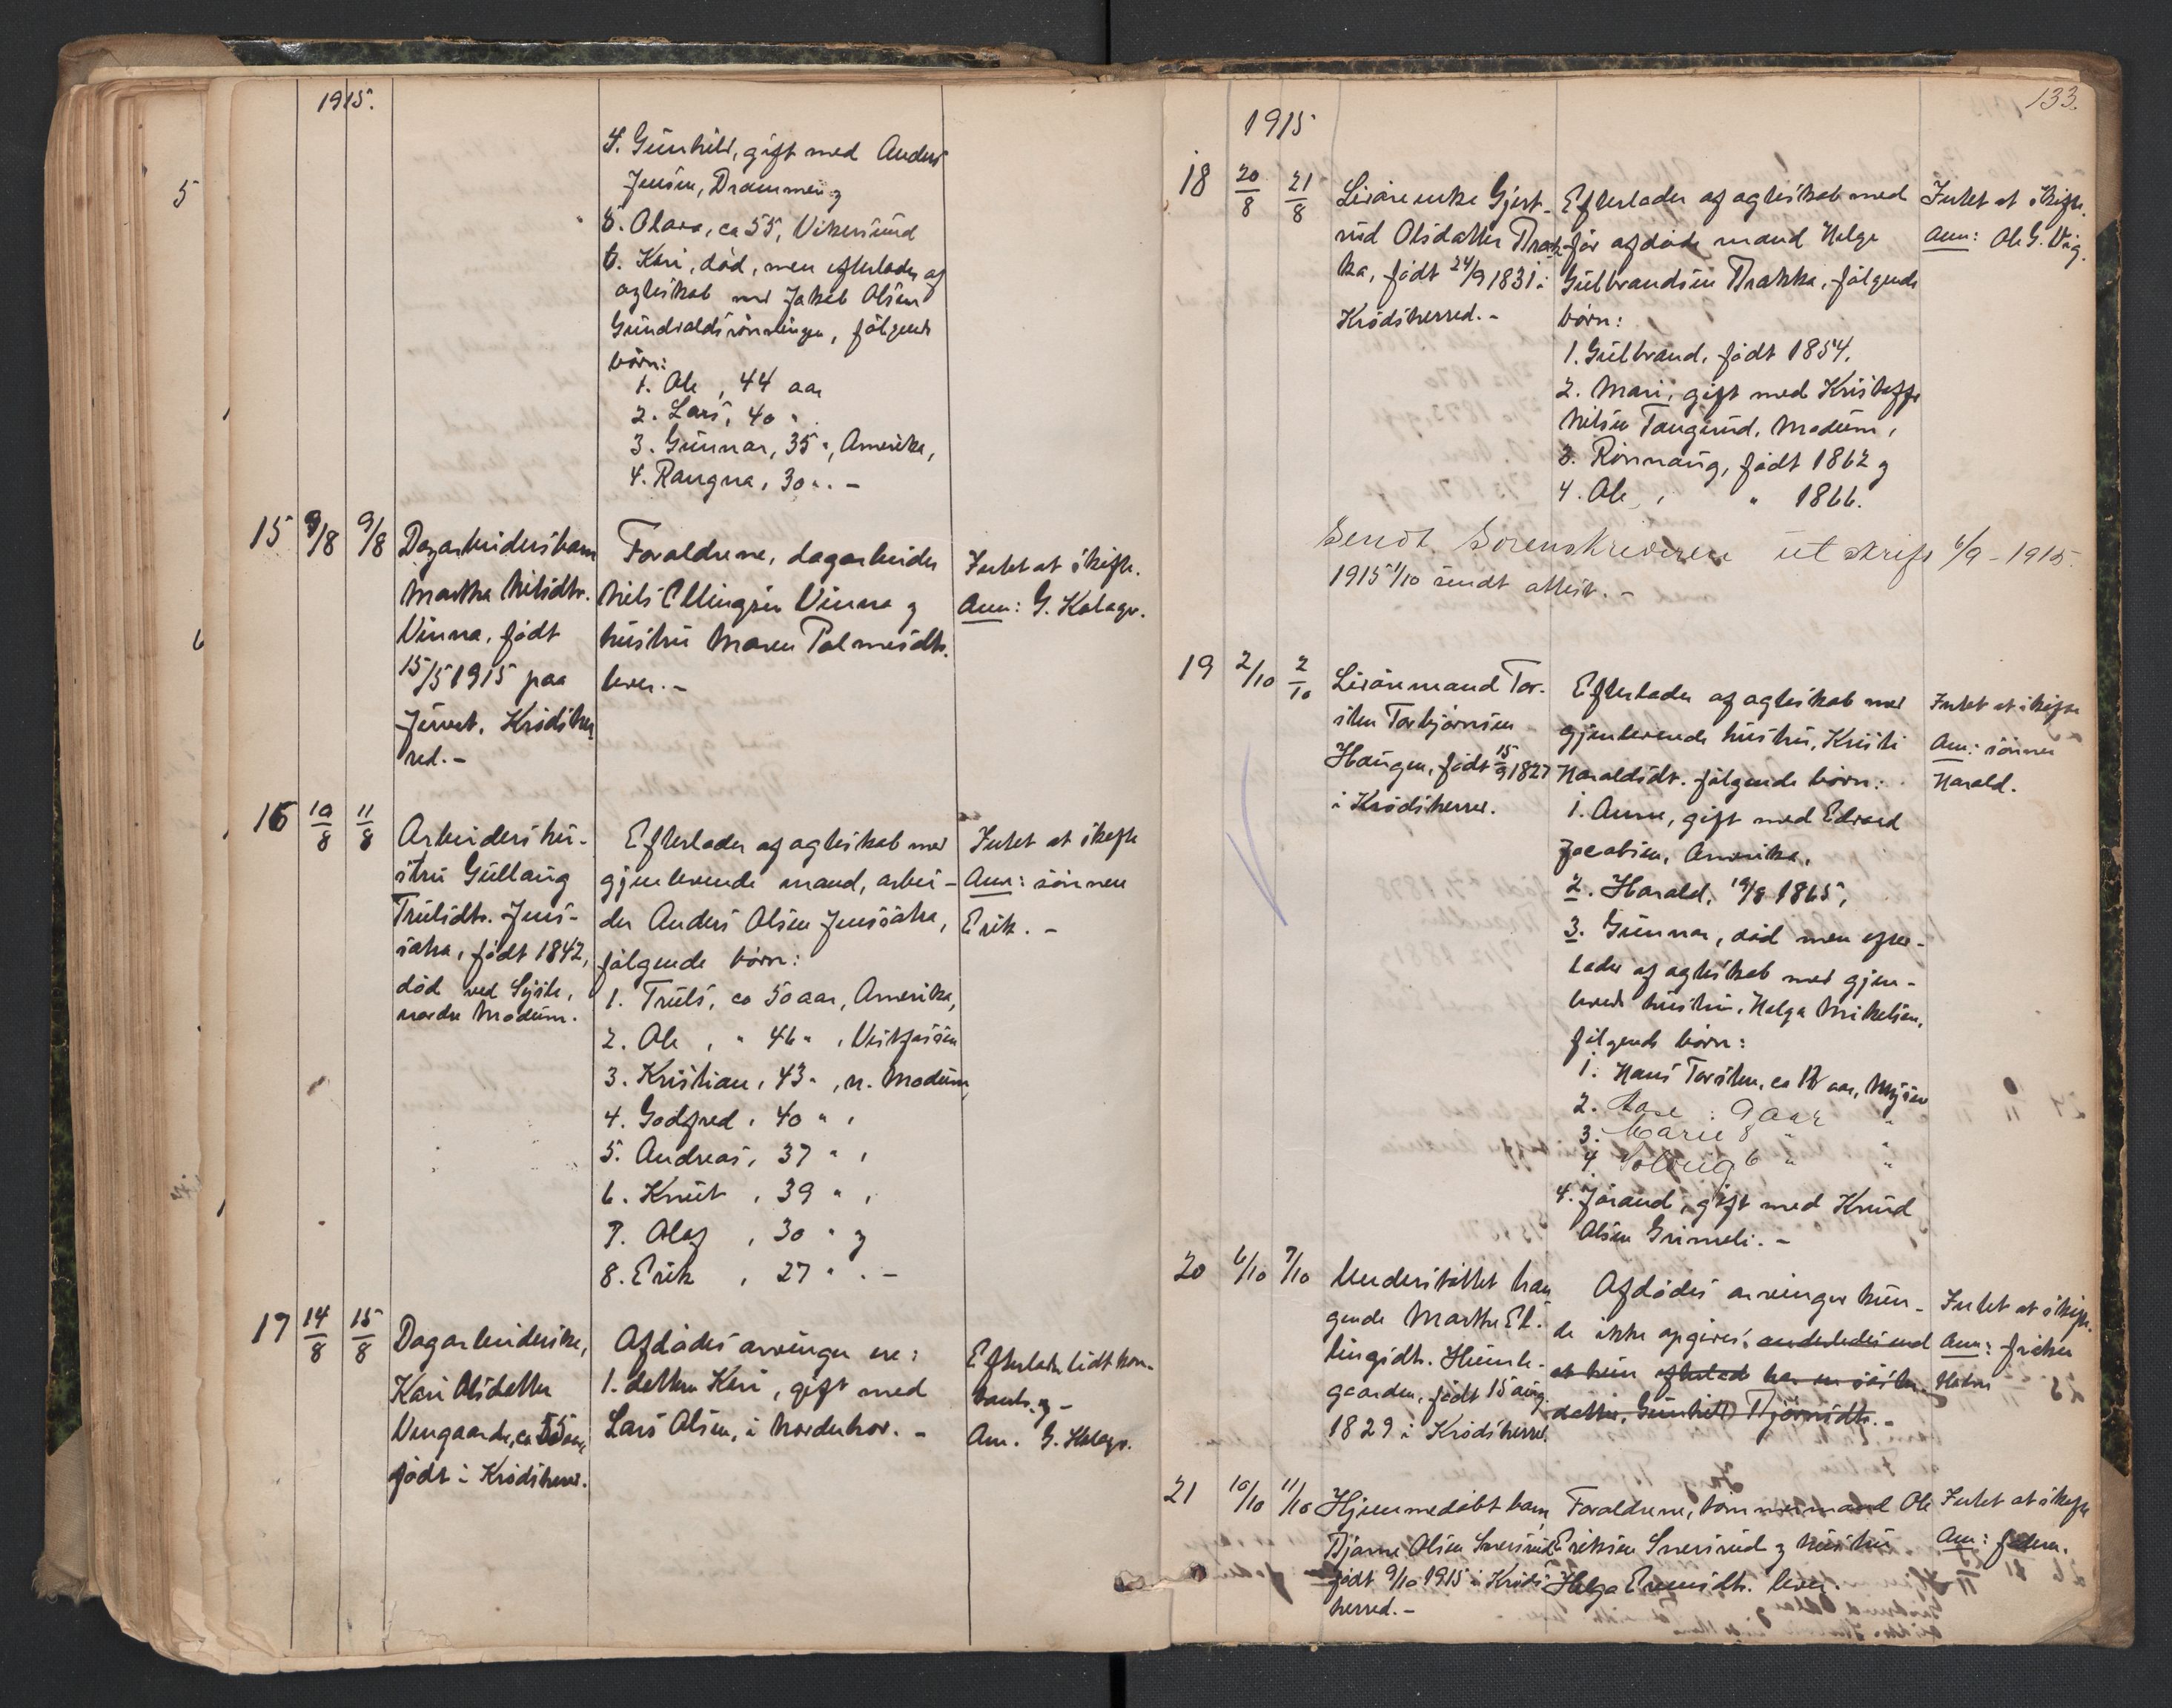 1915.
4. Gunhild, gift med Anders
Jensen, Drammen, og
5. Olava, ca 55, Vikersund
6. Kari, død, men efterlader af
ægteskab med Jakob Olsen
følgende
børn:
1. Ole, 44 aar
2. Lars, 40 "
3. Gunnar, 35 ", Amerika,
4. Rangna, 30 ". -
5
15 9/8 9/8 Dagarbeidersbarn
Martha Nilsdtr.
Vinna, født
15/5 1915 paa
Krødsher
red. -
Forældrene, dagarbeider
Nils Ellingsen Vinna og
hustru Maren Palmesdtr.
lever. -
Intet at skifte.
Anm: G. Kolager.
6
16 10/8 11/8 Arbeidershu-
stru Gullaug
Trulsdtr. Jens-
sætra, født 1842,
død ved Sysle,
nordre Modum.
Efterlader af ægteskab med
gjenlevende mand, arbei-
der Anders Olsen Jenssætra,
følgende børn:
1. Truls, ca 50 aar, Amerika,
2. Ole, " 46 ", Vestfossen
3. Kristian, 43 ", n. Modum,
4. Godfred, 40 ",
5. Andreas, 37 ",
6. Knut, 39 ",
7. Olaf, 30 " og
8. Erik, 27 ". -
Intet at skifte
Anm: sønnen
Erik. -
17 14/8 15/8 Dagarbeiderske,
Kari Olsdatter
Vengaarde, ca 55 aar,
født i Krødsherred.
Afdødes arvinger er:
1. datter Kari, gift med
Lars Olsen, i Norderhov. -
Efterlader lidt kon-
tanter. -
Anm. G. Kolager.
133.
1915
18 20/8 21/8 Livøreenke Gjert-
rud Olsdatter Brak-
ka, født 24/9 1831 i
Krødsherred. -
Efterlader af ægteskab med
før afdøde mand Helge
Gulbrandsen Brakka, følgende
børn:
1. Gulbrand, født 1854,
2. Mari, gift med Kristoffer
Nilsen Tangerud, Modum,
3. Rønnaug, født 1862 og
4. Ole, " 1866.
Intet at skifte.
Anm: Ole G. Vig.
Sendt Sorenskriveren utskrift 6/9 - 1915.
1915 1/10 sendt attest. -
19 2/10 2/10 Livøremand Tor-
sten Torbjørnsen
Haugen, født 15/9 1827
i Krødsherred.
Efterlader af ægteskab med
gjenlevende hustru, Kristi
Haraldsdt. følgende børn:
1. Anne, gift med Edvard
Jacobsen, Amerika,
2. Harald, 19/8 1865,
3. Gunnar, død men efter-
lader af ægteskab med gjen-
levende hustru, Helga Mikelsen,
følgende børn:
1. Hans Torsten, ca 12 aar, Mysen
2. Aase : 9 aar "
3. Marie 8 " "
4. Solveig 6 " "
4. Jørand, gift med Knud
Olsen Grimeli. -
Intet at skifte
Anm: sønnen
Harald.
20 6/10 7/10 Understøttet træn
gende Marthe El-
lingsdtr. Heimle-
gaarden, født 15 aug.
1829 i Krødsherred.
Afdødes arvinger kun-
de ikke opgives, anderledes end
at hun efterlod har en søster-
datter, Gunhild Bjørnsdtr. -
Intet at skifte.
Anm:
21 10/10 11/10 Hjemmedøbt barn
Bjarne Olsen Snersrud
født 9/10 1915 i Krøds
herred. -
Forældrene, tømmermand Ole
Eriksen Snersrud og hustru
Helga lever.
Intet at skifte
Anm: faderen.